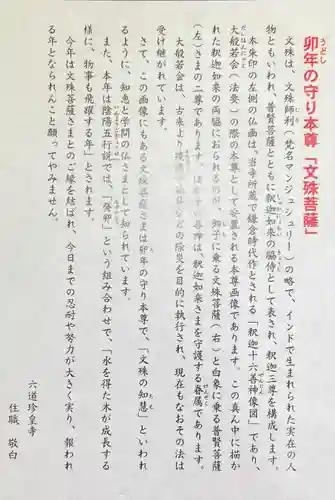 卯年の守り本尊「文殊菩薩」
文殊は、文殊師利（梵名マンジュシュリー）の略で、インドで生まれられた実在の人
物ともいわれ、普賢菩薩とともに釈迦如来の脇侍として表され、釈迦三尊を構成します。
本朱印の左側の仏画は、当寺所蔵で鎌倉時代作とされる「釈迦十六善神像図」であり、
大般若会（法要）の際の本尊として安置される本尊画像であります。この真ん中に描か
れた釈迦如来の両脇におられるのが、獅子に乗る文殊菩薩（右）と白象に乗る普賢菩薩
（左）さまの二尊であります。は、釈迦如来さまを守護する眷属であります。
大般若会は、古来より などの除災を目的に執行され、現在もなおその法は
受け継がれています。
さて、この画像にもある文殊菩薩さまは卯年の守り本尊で、「文殊の知慧」といわれ
るように、知恵と学問の仏さまとして知られています。
また、本年は陰陽五行説では、「癸卯」という組み合わせで、「水を得た木が成長する
様に、物事も飛躍する年」とされます。
今年は文殊菩薩さまとのご縁を結ばれ、今日までの忍耐や努力が大きく実り、報われ
る年となられんこと願ってやみません。
六道珍皇寺
住職 敬白